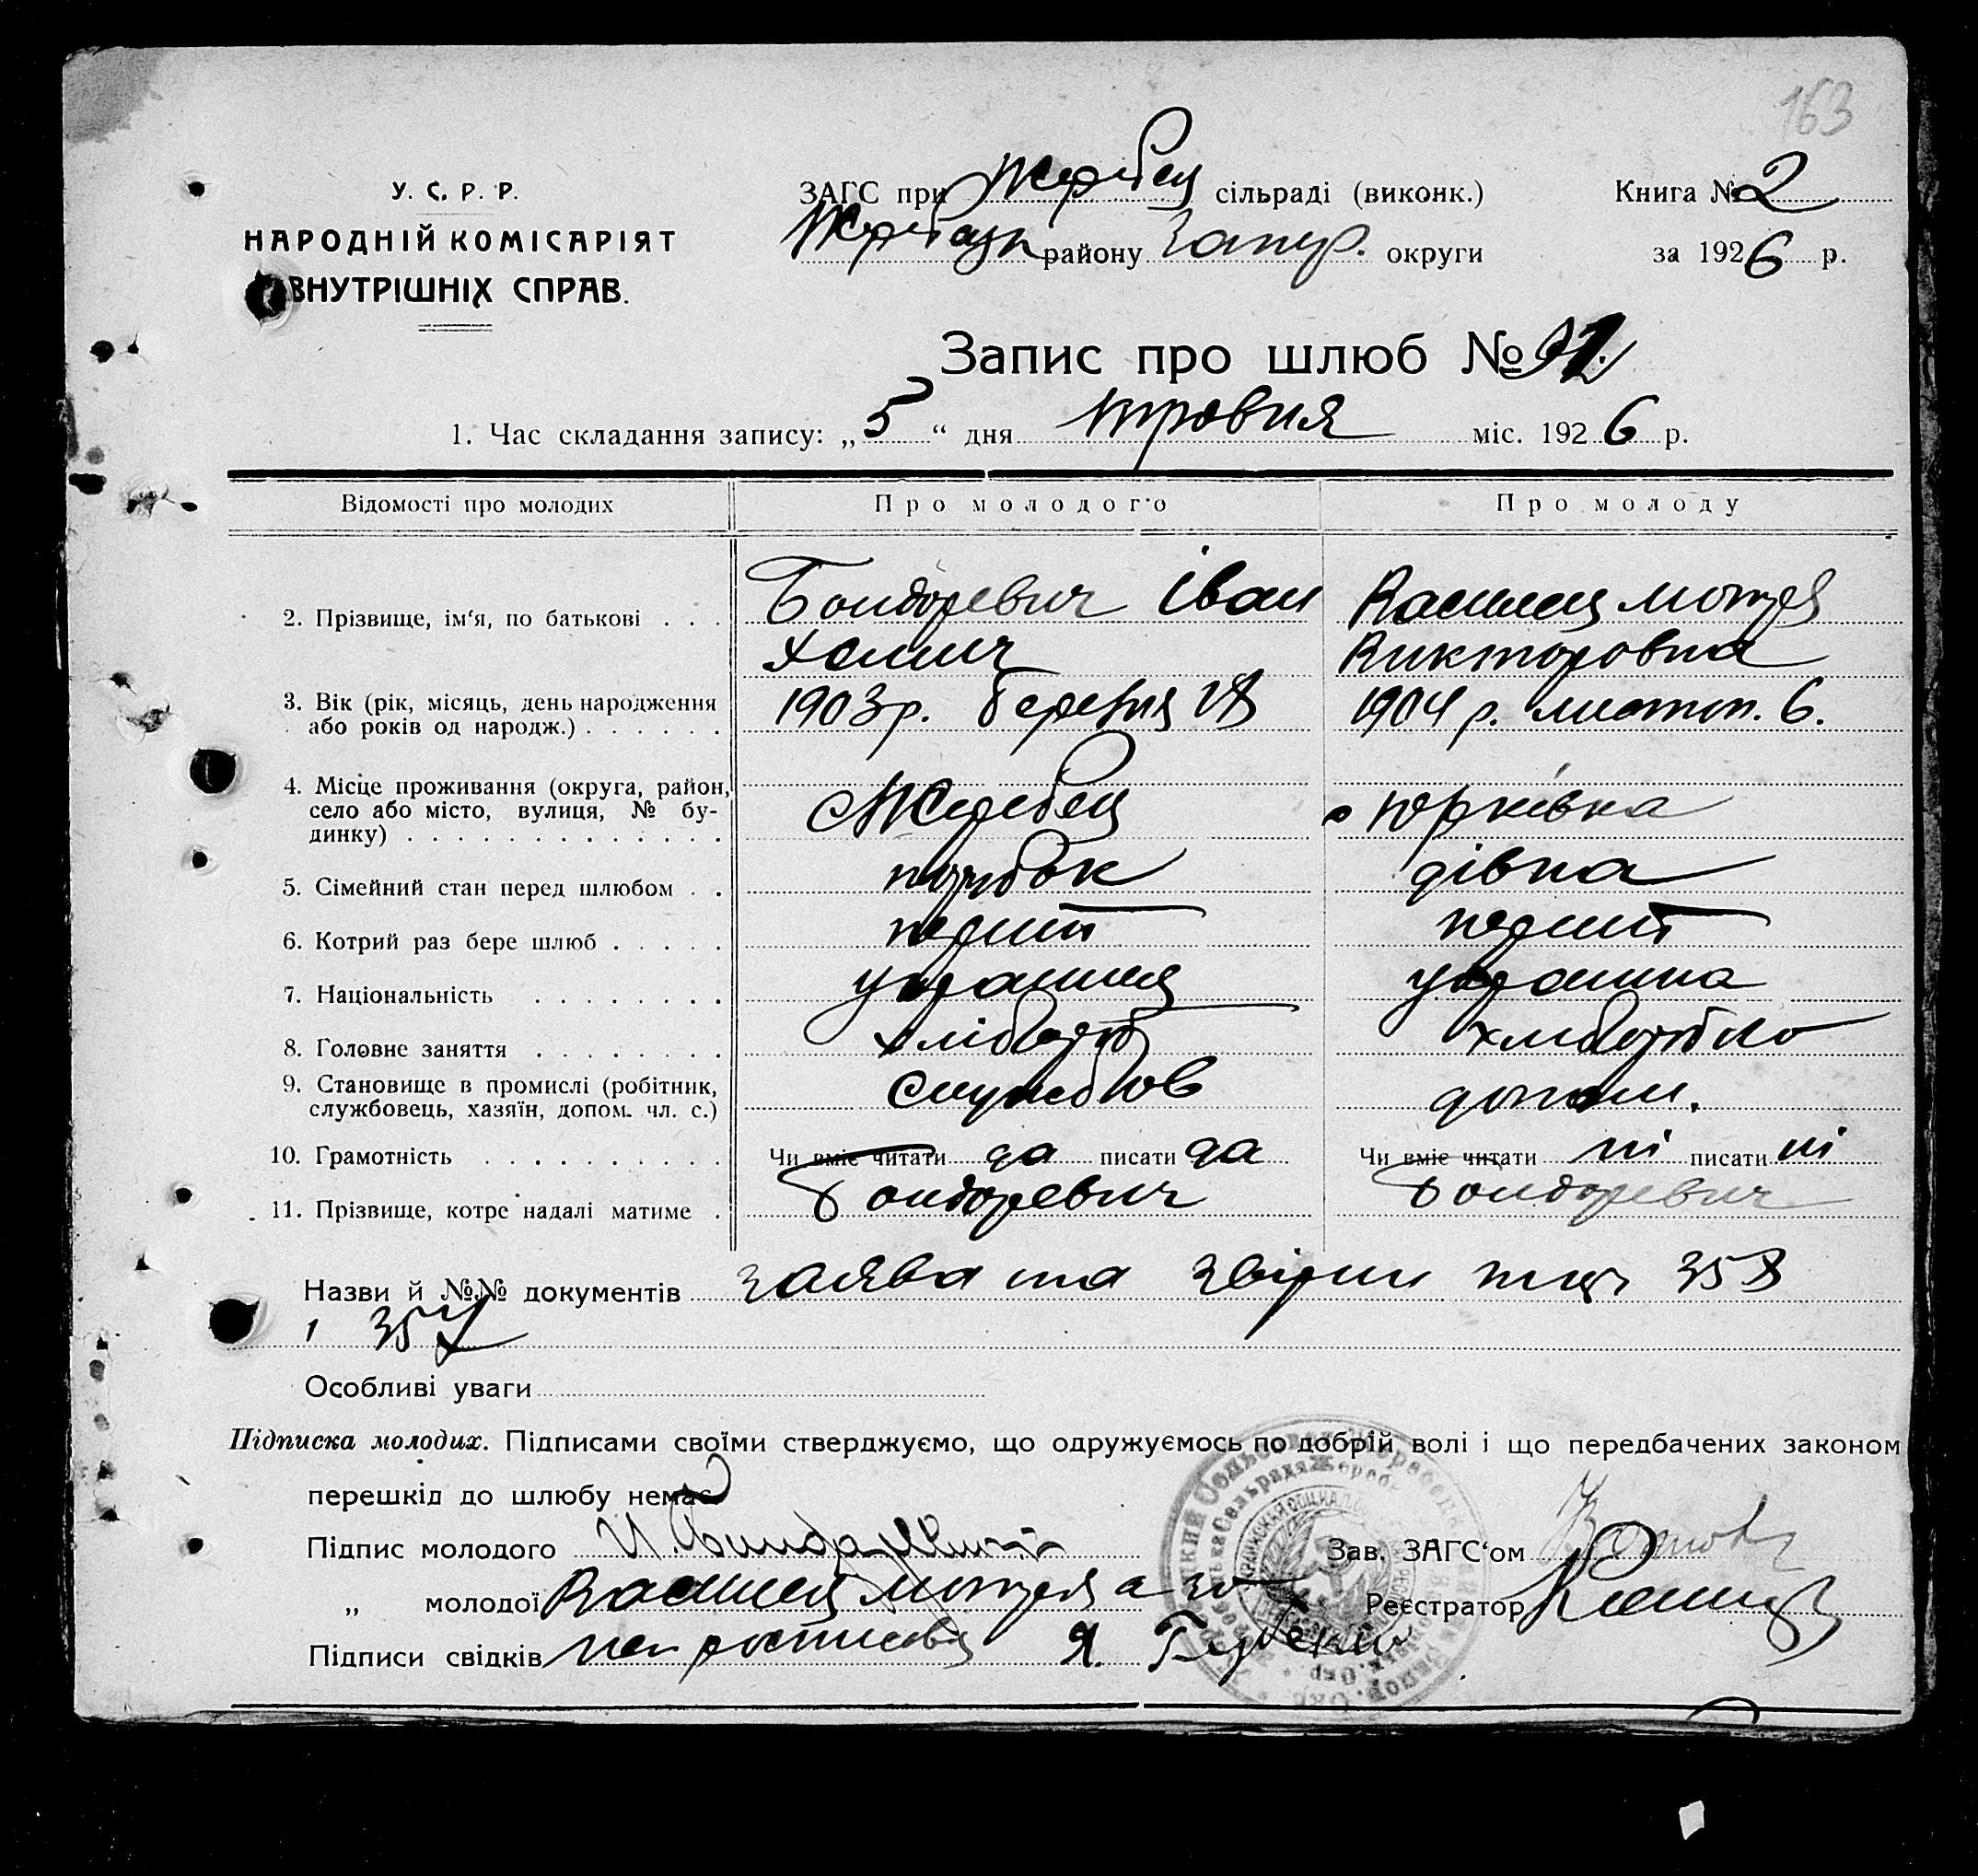 163
У. С. Р. Р.
НАРОДНІЙ КОМІСАРІЯТ
ВНУТРІШНІХ СПРАВ.
ЗАГС при Жеребец сільраді (виконк.)
Книга № 2
району Запор. округи
за 1926 р.
Запис про шлюб №
1. Час складання запису: „5“ дня травня міс. 1926 р.
Відомості про молодих
Про молодого
Про молоду
2. Прізвище, ім'я, по батькові . . .
Бондоревич Іван
Хомич
Василец Мотря
Викторовна
3. Вік (рік, місяць, день народження
або років од народж.) . . . . . .
1903 р. березня
1904 р. листоп. 6.
4. Місце проживання (округа, район,
село або місто, вулиця, № бу-
динку) . . . . . . . . . . . . .
Жеребец
Юрківка
5. Сімейний стан перед шлюбом . .
парубок
дівка
6. Котрий раз бере шлюб . . . . .
перший
перший
7. Національність . . . . . . . .
украинец
украинка
8. Головне заняття . . . . . . . .
хлібороб
9. Становище в промислі (робітник,
службовець, хазяїн, допом. чл. с.)
службов
допом.
10. Грамотність . . . . . . . . . .
Чи вміє читати да писати да
Чи вміє читати ні писати ні
11. Прізвище, котре надалі матиме .
Бондоревич
Бондоревич
Назви й №№ документів заява та 358
і 357
Особливі уваги
Підписка молодих. Підписами своїми стверджуємо, що одружуємось по добрій волі і що передбачених законом
перешкід до шлюбу немає.
Підпис молодого
Зав. ЗАГС'ом
„ молодої Василец Мотря а за
Реєстратор
Підписи свідків Я.